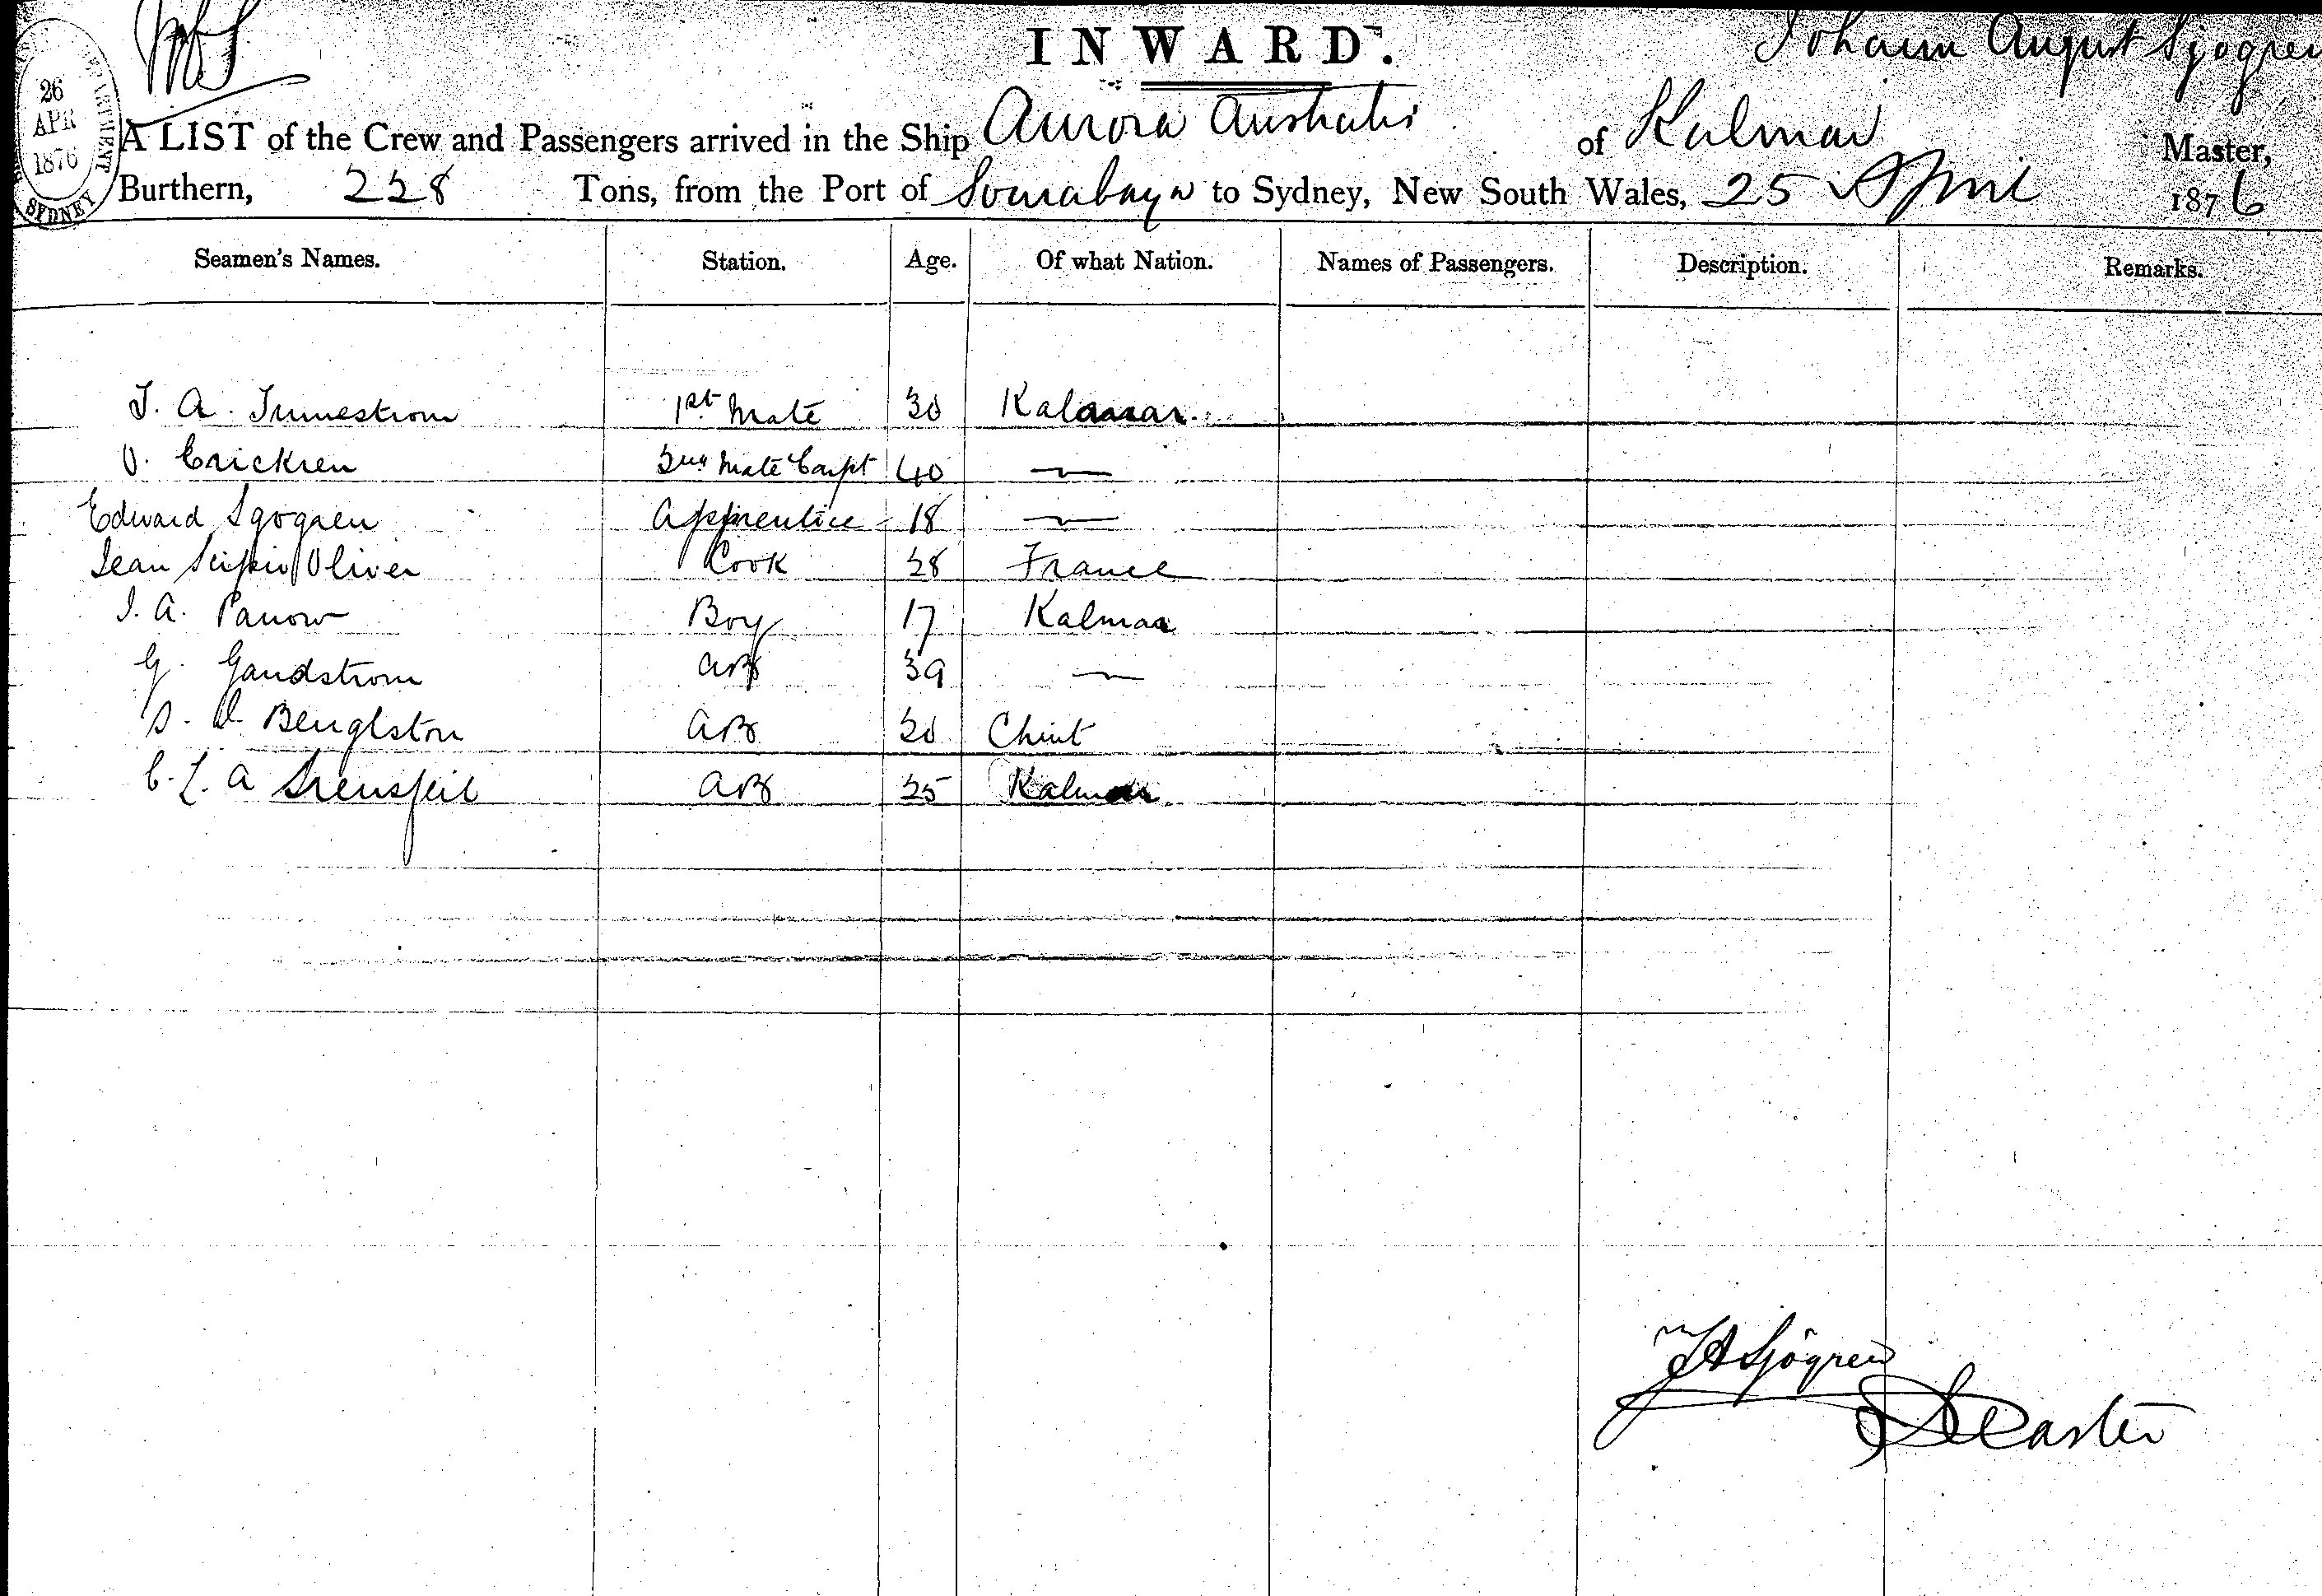 INWARD.
Johann August Sjogren
26
APR
1876
DEPARTMENT
SYDNEY
A LIST of the Crew and Passengers arrived in the Ship Aurora Australis of Kalmar Master,
Burthern, 228 Tons, from the Port of Sourabaya to Sydney, New South Wales, 25 April 1876
Seamen's Names. Station. Age. Of what Nation. Names of Passengers. Description. Remarks.
J. A. 1st Mate 30 Kalamar
O. Erickren 2nd Mate Carpt 40 —
Edward Sgogren Apprentice 18 —
Jean Scipio Oliver Cook 28 France
J. A. Panow Boy 17 Kalmar
G. Gandstrom AB 39 —
S. O. Benglston AB 20
C. L. A AB 25 Kalmar
JA Sjögren
Master